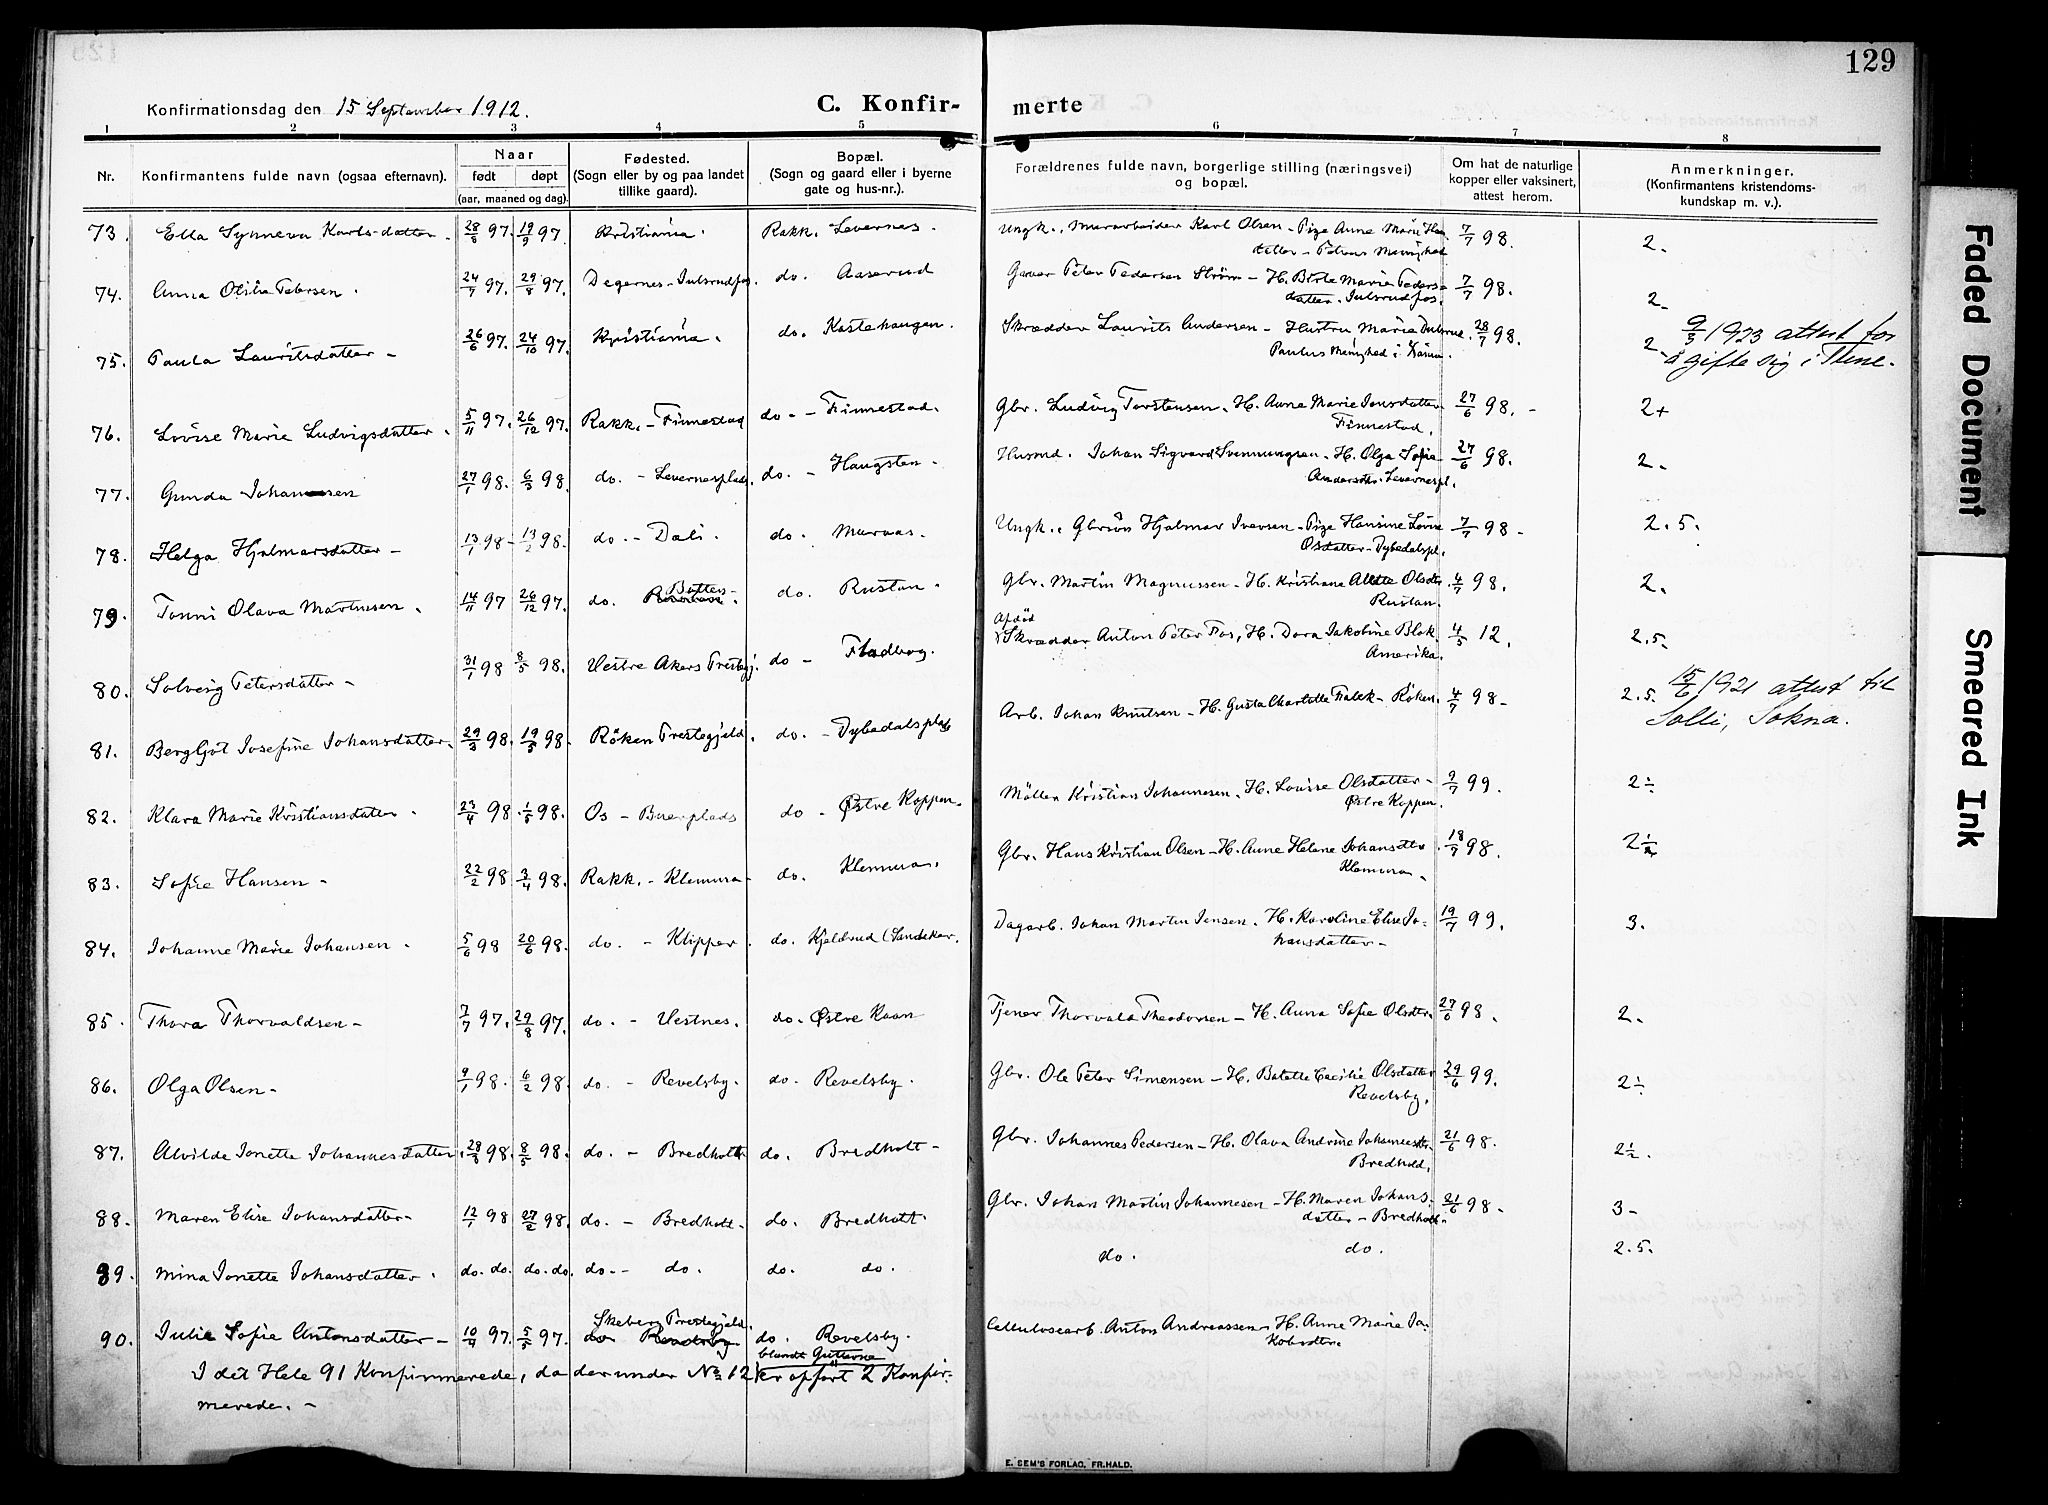 129
Konfirmationsdag den 15 September 1912. C. Konfir- merte
1 2 3 4 5 6 7 8
Nr. Konfirmantens fulde navn (ogsaa efternavn). Naar født døpt (aar, maaned og dag). Fødested. (Sogn eller by og paa landet tillike gaard). Bopæl. (Sogn og gaard eller i byerne gate og hus-nr.). Forældrenes fulde navn, borgerlige stilling (næringsvei) og bopæl. Om hat de naturlige kopper eller vaksinert, attest herom. Anmerkninger. (Konfirmantens kristendoms- kundskap m. v.).
73. Ella Synneva Karls-datter. 28/8 97. 19/9 97. Kristiania. Rakk. Levernes. Ungk., Murarbeider Karl Olsen - Pige Anne Marie Petrus Menighed 7/7 98. 2.
74. Anna Otilie Petersen. 24/7 97. 29/8 97. Degernes - Julsrudfos. do. Aaserud Garver Peter Pedersen Strøm - H. Birte Marie Peders- datter. Julsrudfos. 7/7 98. 2-
75. Paula Lauritsdatter - 26/6 97. 24/10 97. Kristiania. do. Kostehaugen. Skrædder Laurits Andersen - Hustru Marie Paulus Menighed i Kristiania 28/7 98. 2- 9/3 1923 attest for å gifte sig i Tune.
76. Lovise Marie Ludvigsdatter. 5/11 97. 26/12 97. Rakk. - Finnestad do. - Finnestad. Gbr. Ludvig Torstensen. H. Anne Marie Jonsdatter Finnestad. 27/6 98. - 2+
77. Gunda Johannesen 27/1 98. 6/3 98. do. - Levernesplads. do. - Haugsten. Husmd. Johan Sigvard Svenningsen - H. Olga Sofie Andersdtr. Levernespl. 27/6 98. 2.
78. Helga Hjalmarsdatter - 13/1 98 - 13/2 98. do. - Dæli. do. Murvas. Ungk., Gbrsøn Hjalmar Iversen - Pige Hansine Lovise Osdatter - Dybedalspl. 7/7 98 - 2.5.
79. Tonni Olava Martinsen. 14/11 97 26/12 97. do. do. Rustan. Gbr. Martin Magnussen - H. Kristiane Alette Olsdtr. Rustan. 4/7 98. 2.
80. Solveig Petersdatter - 31/1 98 8/5 98. Vestre Akers Prestegj. do - Fladberg. Afdød Skrædder Anton Peter Fos, H. Dora Jakobine Blok. Amerika. 4/5 12. 2.5.
81. Bergljot Josefine Johansdatter. 29/3 98. 19/5 98. Röken Prestegjeld. do. - Dybedalsplads Arb. Johan Knutsen - H. Gusta Charlotte Falck - Röken. 4/7 98 - 2.5. 15/6 1921 attest til Solli, Sokna.
82. Klara Marie Kristiansdatter. 23/4 98. 1/5 98. Os - Buerplads do - Østre Koppen. Möller Kristian Johannesen. H. Lovise Olsdatter - Østre Koppen. 9/7 99. 2÷
83. Sofie Hansen - 22/2 98 3/4 98. Rakk. - Klemura - do. Klemura. Gbr. Hans Kristian Olsen - H. Anne Helene Johansdtr Klemura. 18/7 98. 2÷
84. Johanne Marie Johansen. 5/6 98 20/6 98. do. - Klipper. do. Kjølsrud (Sandaker. Dagarb. Johan Martin Jensen. H. Karoline Elise Jo- hansdatter - 19/7 99. 3.
85. Thora Thorvaldsen - 7/7 97. 29/8 97. do. - Vestnes. do. Østre Kaan Tjener Thorvald Theodorsen - H. Anna Sofie Olsdtr. 27/6 98. 2.
86. Olga Olsen - 9/1 98. 6/2 98. do. - Revelsby. do. Revelsby. Gbr. Ole Peter Simensen - H. Batolle Cecilie Olsdatter Revelsby. 29/6 99. 2÷
87. Alvilde Jonette Johannesdatter. 28/3 98. 8/5 98. do. - Bredholt do. Bredholt - Gbr. Johannes Pedersen - H. Olava Andrine Johannesdtr. Bredhold. 21/6 98. 2÷.
88. Maren Elise Johansdatter - 12/1 98 27/2 98. do. - Bredholt. do. Bredholt. Gbr. Johan Martin Johannesen - H. Maren Johans- datter - Bredholt. 21/6 98. 3-
89. Mina Jonette Johansdatter. do. do. do. do. do. - do. do. do. do. do. 2.5.
90. Julie Sofie Antonsdatter - 10/4 97. 5/5 97. Skeberg Prestegjeld. do Revelsby do. Revelsby. Cellulosearb. Anton Andreassen - H. Anne Marie Ja- kobsdtr.
I det Hele 91 Konfirmerede, da der under No 12 blandt Gutterne er opført 2 Konfir-
merede. -
E. SEM'S FORLAG, FR.HALD.
Faded Document
Smeared Ink